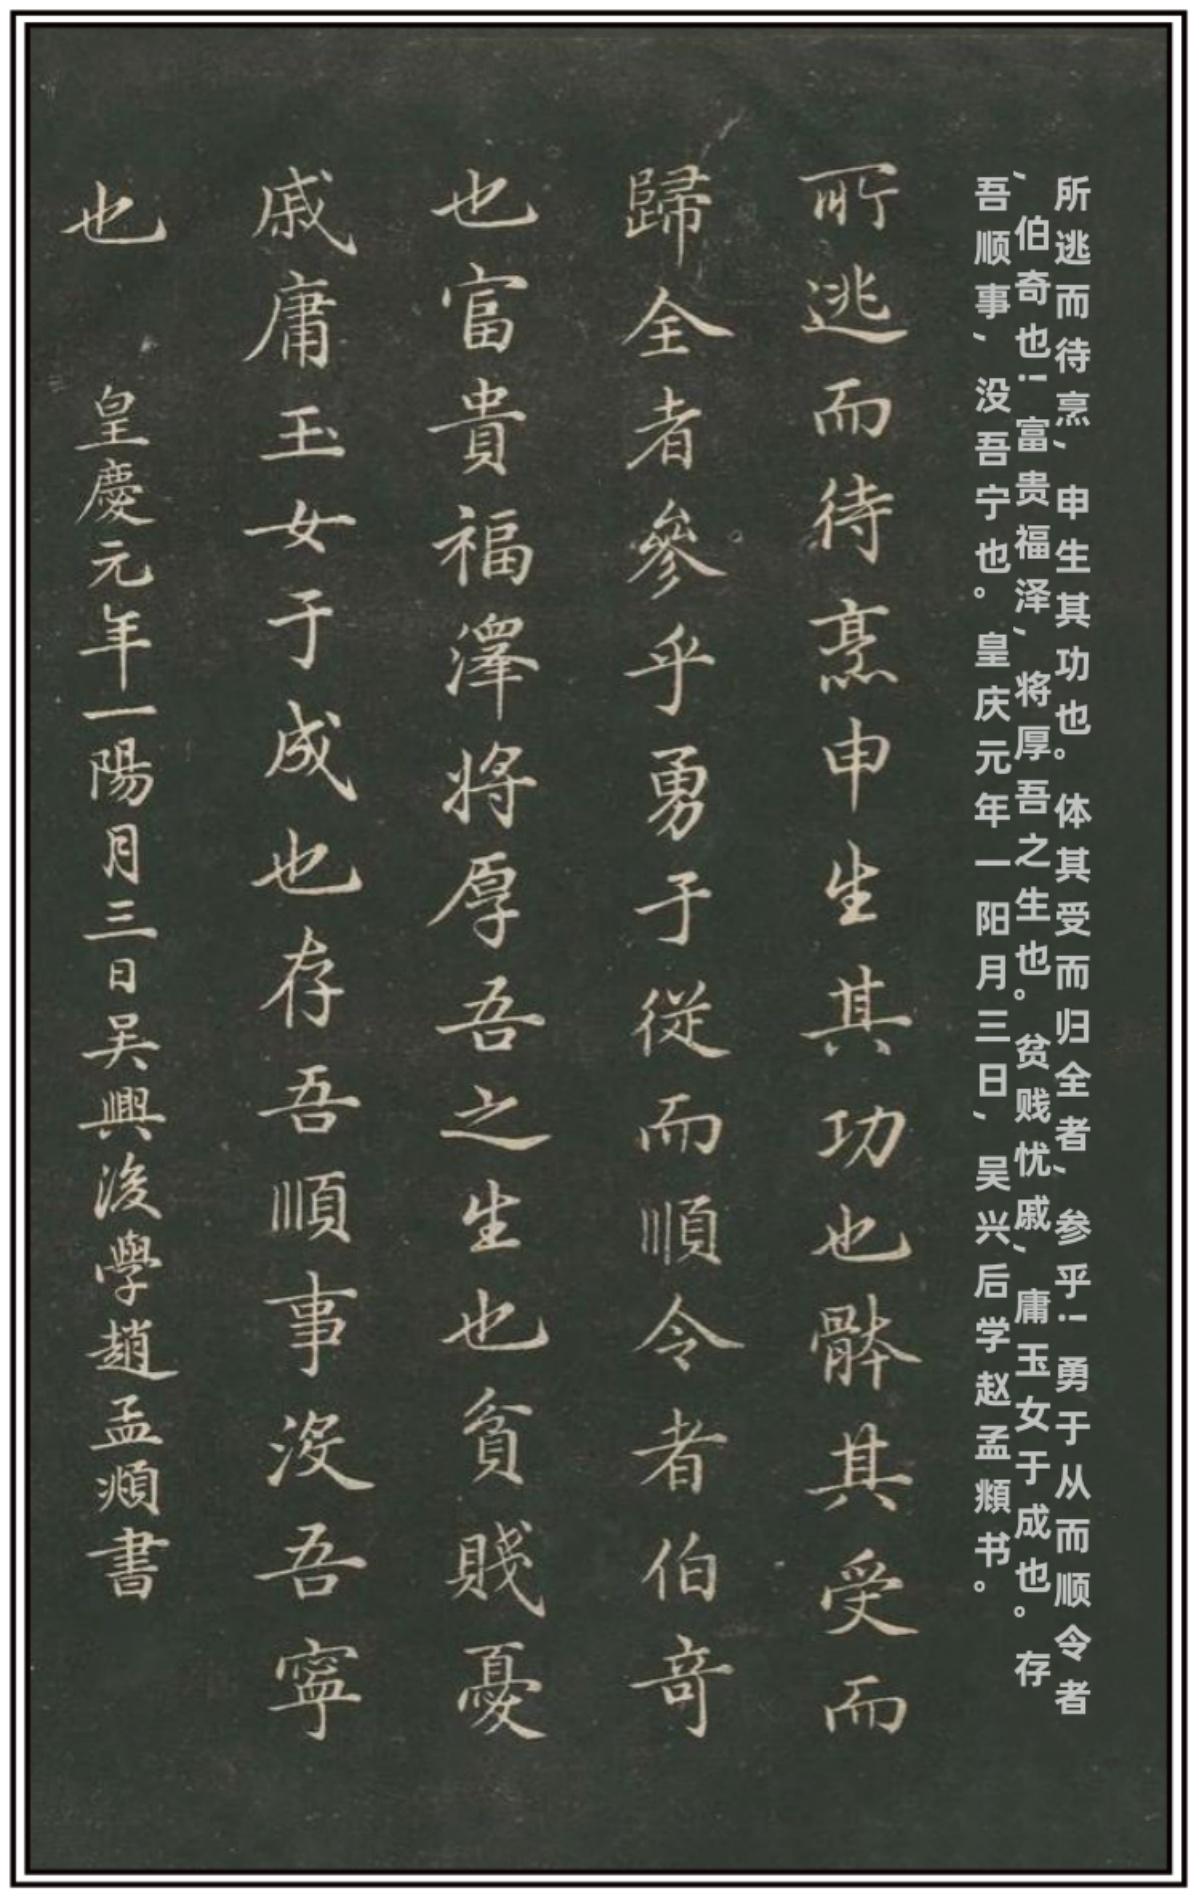 所逃而待烹，申生其功也。体其受而归全者，参乎！勇于从而顺令者
，伯奇也！富贵福泽，将厚吾之生也。贫贱忧戚，庸玉女于成也。存
吾顺事，没吾宁也。皇庆元年一阳月三日，吴兴后学赵孟頫书。
所逃而待烹申生其功也骵其受而
歸全者參乎勇于從而順令者伯奇
也富貴福澤將厚吾之生也貧賤憂
戚庸玉女于成也存吾順事没吾寧
也 皇慶元年一陽月三日吴興後學趙孟頫書